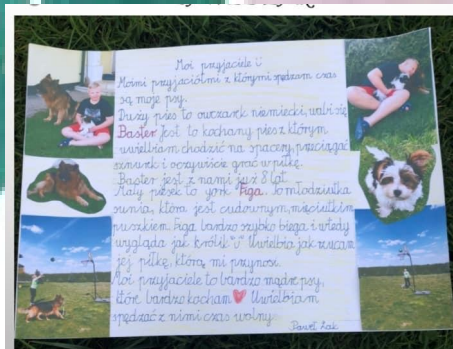 Moi przyjaciele ü
Moimi przyjaciółmi z którymi spędzam czas
są moje psy.
Duży pies to owczarek niemiecki, wabi się
Baster. Jest to kochany pies z którym
uwielbiam chodzić na spacery, przeciągać
sznurek i oczywiście grać w piłkę.
Baster jest z nami już 8 lat.
Mały piesek to york Figa. To młodziutka
sunia, która jest cudownym, mięciutkim
puszkiem. Figa bardzo szybko biega i wtedy
wygląda jak królik "ü" Uwielbia jak rzucam
jej piłkę, którą mi przynosi.
Moi przyjaciele to bardzo mądre psy,
które bardzo kocham ❤ Uwielbiam
spędzać z nimi czas wolny.
Paweł Żak